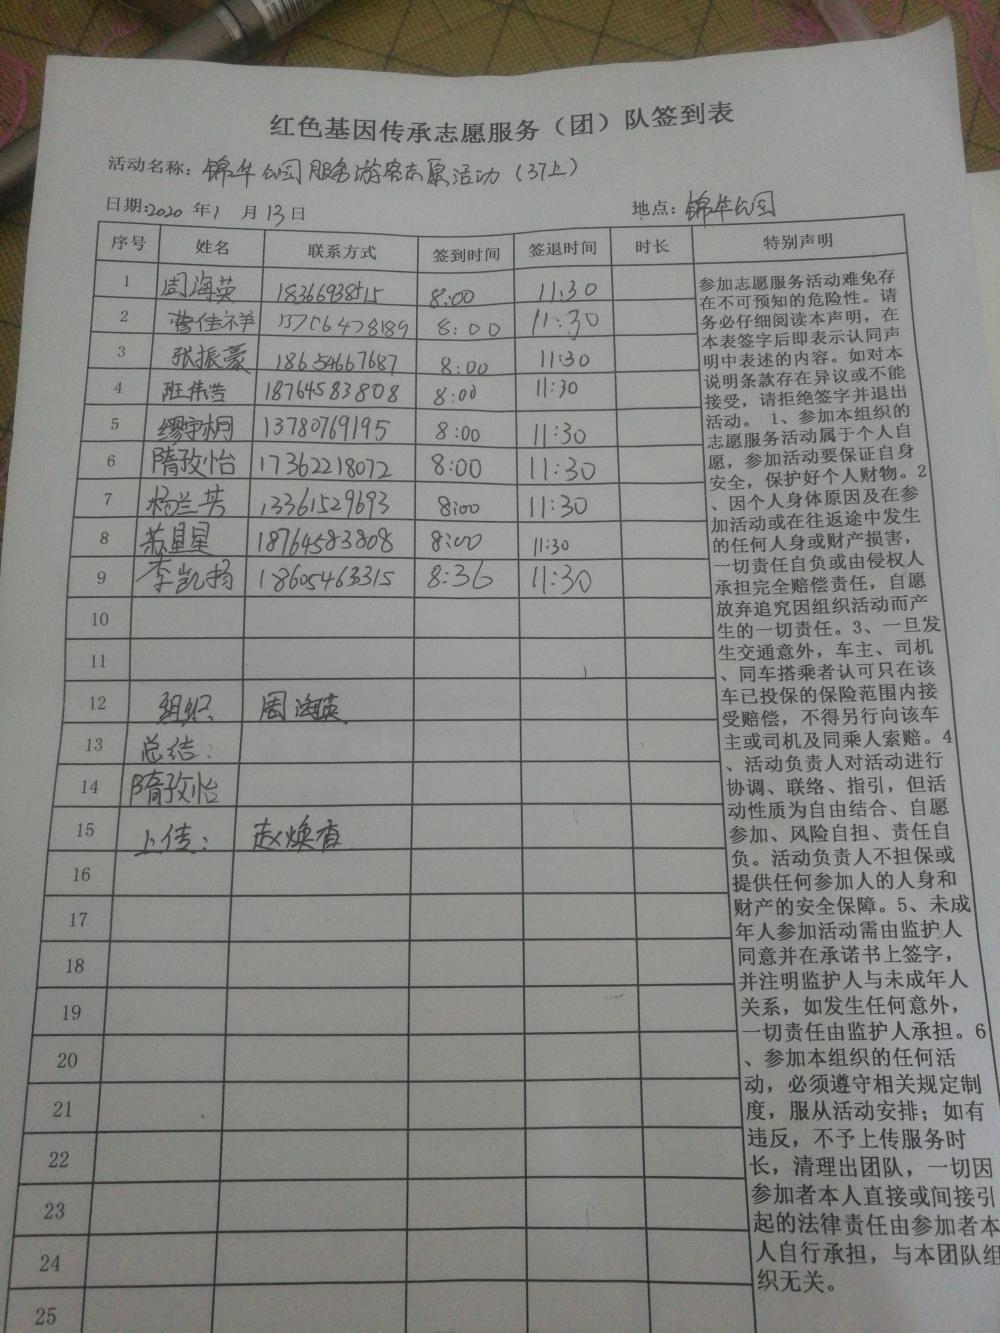 红色基因传承志愿服务（团）队签到表
活动名称：锦华公园服务游客志愿活动（37上）
日期：2020 年 1 月 13 日 地点：锦华公园
序号 姓名 联系方式 签到时间 签退时间 时长 特别声明
1 周海英 18366938515 8:00 11:30
2 曹佳祥 13706478189 8:00 11:30
3 张振豪 18654667687 8:00 11:30
4 班伟浩 18764583808 8:00 11:30
5 缪宇桐 13780769195 8:00 11:30
6 隋孜怡 17362218072 8:00 11:30
7 杨兰英 13361529693 8:00 11:30
8 苏星星 18764583808 8:00 11:30
9 李凯扬 18605463315 8:36 11:30
10
11
12 组织 周海英
13 总结：
14 隋孜怡
15 上传： 赵焕香
16
17
18
19
20
21
22
23
24
25
参加志愿服务活动难免存
在不可预知的危险性。请
务必仔细阅读本声明，在
本表签字后即表示认同声
明中表述的内容。如对本
说明条款存在异议或不能
接受，请拒绝签字并退出
活动。 1、参加本组织的
志愿服务活动属于个人自
愿，参加活动要保证自身
安全，保护好个人财物。2
、因个人身体原因及在参
加活动或在往返途中发生
的任何人身或财产损害，
一切责任自负或由侵权人
承担完全赔偿责任，自愿
放弃追究因组织活动而产
生的一切责任。3、一旦发
生交通意外，车主、司机
、同车搭乘者认可只在该
车已投保的保险范围内接
受赔偿，不得另行向该车
主或司机及同乘人索赔。4
、活动负责人对活动进行
协调、联络、指引，但活
动性质为自由结合、自愿
参加、风险自担、责任自
负。活动负责人不担保或
提供任何参加人的人身和
财产的安全保障。5、未成
年人参加活动需由监护人
同意并在承诺书上签字，
并注明监护人与未成年人
关系，如发生任何意外，
一切责任由监护人承担。6
、参加本组织的任何活
动，必须遵守相关规定制
度，服从活动安排；如有
违反，不予上传服务时
长，清理出团队，一切因
参加者本人直接或间接引
起的法律责任由参加者本
人自行承担，与本团队组
织无关。